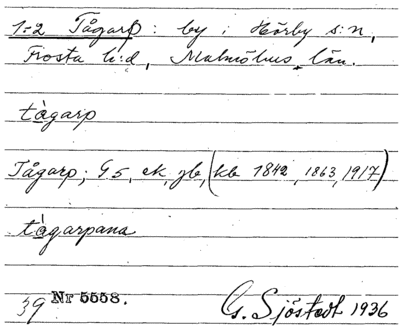 1=2 Tågarp: by i Hörby s:n,
Frosta h:d, Malmöhus län.
tågarp
Tågarp; G5, ek, jb, (kb 1842, 1863, 1917)
tågarpana
39 Nr 5558. G. Sjöstedt 1936